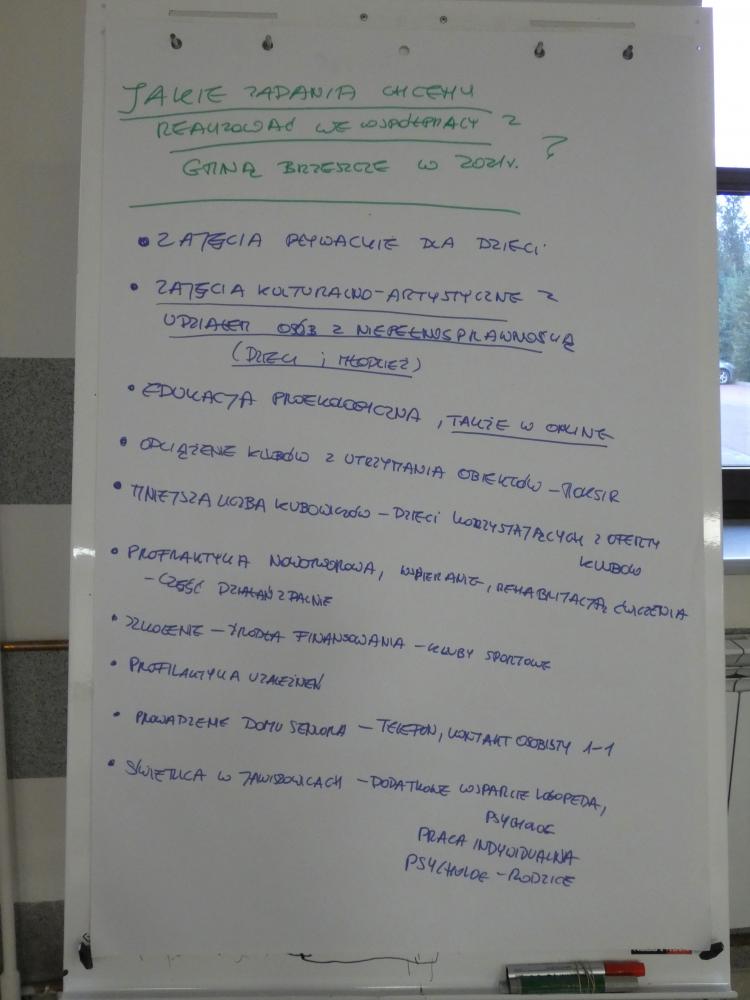 JAKIE ZADANIA CHCEMY
REALIZOWAĆ WE WSPÓŁPRACY Z
GMINĄ BRZESZCZE W 2021r. ?
• ZAJĘCIA PŁYWACKIE DLA DZIECI
• ZAJĘCIA KULTURALNO-ARTYSTYCZNE Z
UDZIAŁEM OSÓB Z NIEPEŁNOSPRAWNOŚCIĄ
(DZIECI i MŁODZIEŻ)
• EDUKACJA PROEKOLOGICZNA, TAKŻE W ONLINE
• ODCIĄŻENIE KLUBÓW Z UTRZYMANIA OBIEKTÓW – MOKSIR
• MNIEJSZA LICZBA KLUBOWICZÓW – DZIECI KORZYSTAJĄCYCH Z OFERTY
KLUBÓW
• PROFILAKTYKA NOWOTWOROWA, WSPIERANIE, REHABILITACJA, ĆWICZENIA
– CZĘŚĆ DZIAŁAŃ ZDALNIE
• SZKOLENIE – ŹRÓDŁA FINANSOWANIA – KLUBY SPORTOWE
• PROFILAKTYKA UZALEŻNIEŃ
• PROWADZENIE DOMU SENIORA – TELEFON, KONTAKT OSOBISTY 1-1
• ŚWIETLICA W JAWISZOWICACH – DODATKOWE WSPARCIE LOGOPEDA,
PSYCHOLOG
PRACA INDYWIDUALNA
PSYCHOLOG – RODZICE